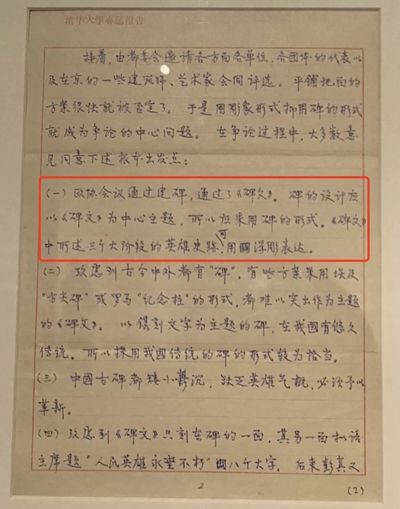 清华大学专届报告
接着，由都委会邀请各方面各单位、各团体的代表以
及在京的一些建筑师、艺术家会同评选。平铺地面的
方案很快就被否定了。于是用彫象形式抑用碑的形式
就成为争论的中心问题。在争论过程中，大多数意
见同意下述根本出发点：
(一) 政协会议通过建碑，通过了《碑文》。碑的设计应
以《碑文》为中心主题，所以应采用碑的形式。《碑文》
中所述三个大阶段的英雄史跡，可用浮彫表达。
(二) 攷虑到古今中外都有“碑”，有些方案采用埃及
“方尖碑”或罗马“纪念柱”的形式，都难以突出作为主题
的《碑文》。以镌刻文字为主题的碑，在我國有悠久
传统。所以採用我國传统的碑的形式較为恰当。
(三) 中國古碑都矮小鬱沉，缺乏英雄气概，必须予以
革新。
(四) 攷虑到《碑文》只刻在碑的一面，其另一面拟请
主席题“人民英雄永垂不朽”八个大字。后来彭真又
2
(2)